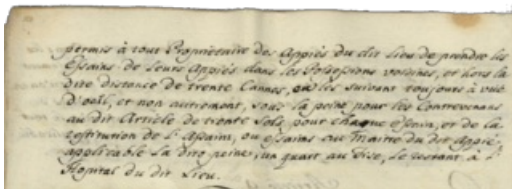 permis à tout Propriétaire des Appiés du dit Lieu de prendre les
Essains de Leurs Appiés dans les Possessions voisines, et hors la
dite distance de trente Cannes, en les suivant toujours à vuë
d'oeil, et non autrement, sous la peine pour les Contrevenans
au dit Article de trente sols, pour chaque essain, et de la
restitution de l'Essain, ou essains au maitre du dit Appié,
applicable la dite peine, un quart au Fisc, le restant à l'
Hopital du dit Lieu.